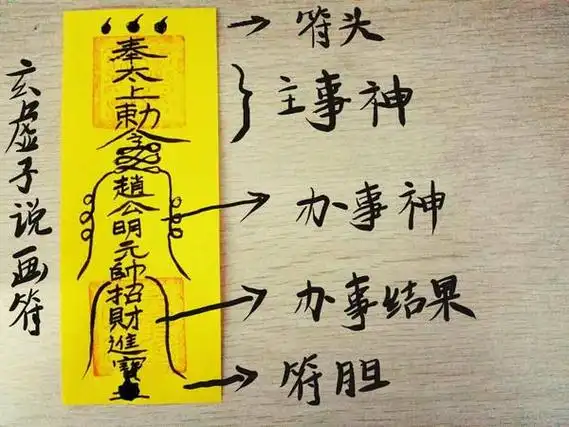 玄虚子说画符
奉太上勅令
趙公明元帥招財進寶
符头
主事神
办事神
办事结果
符胆